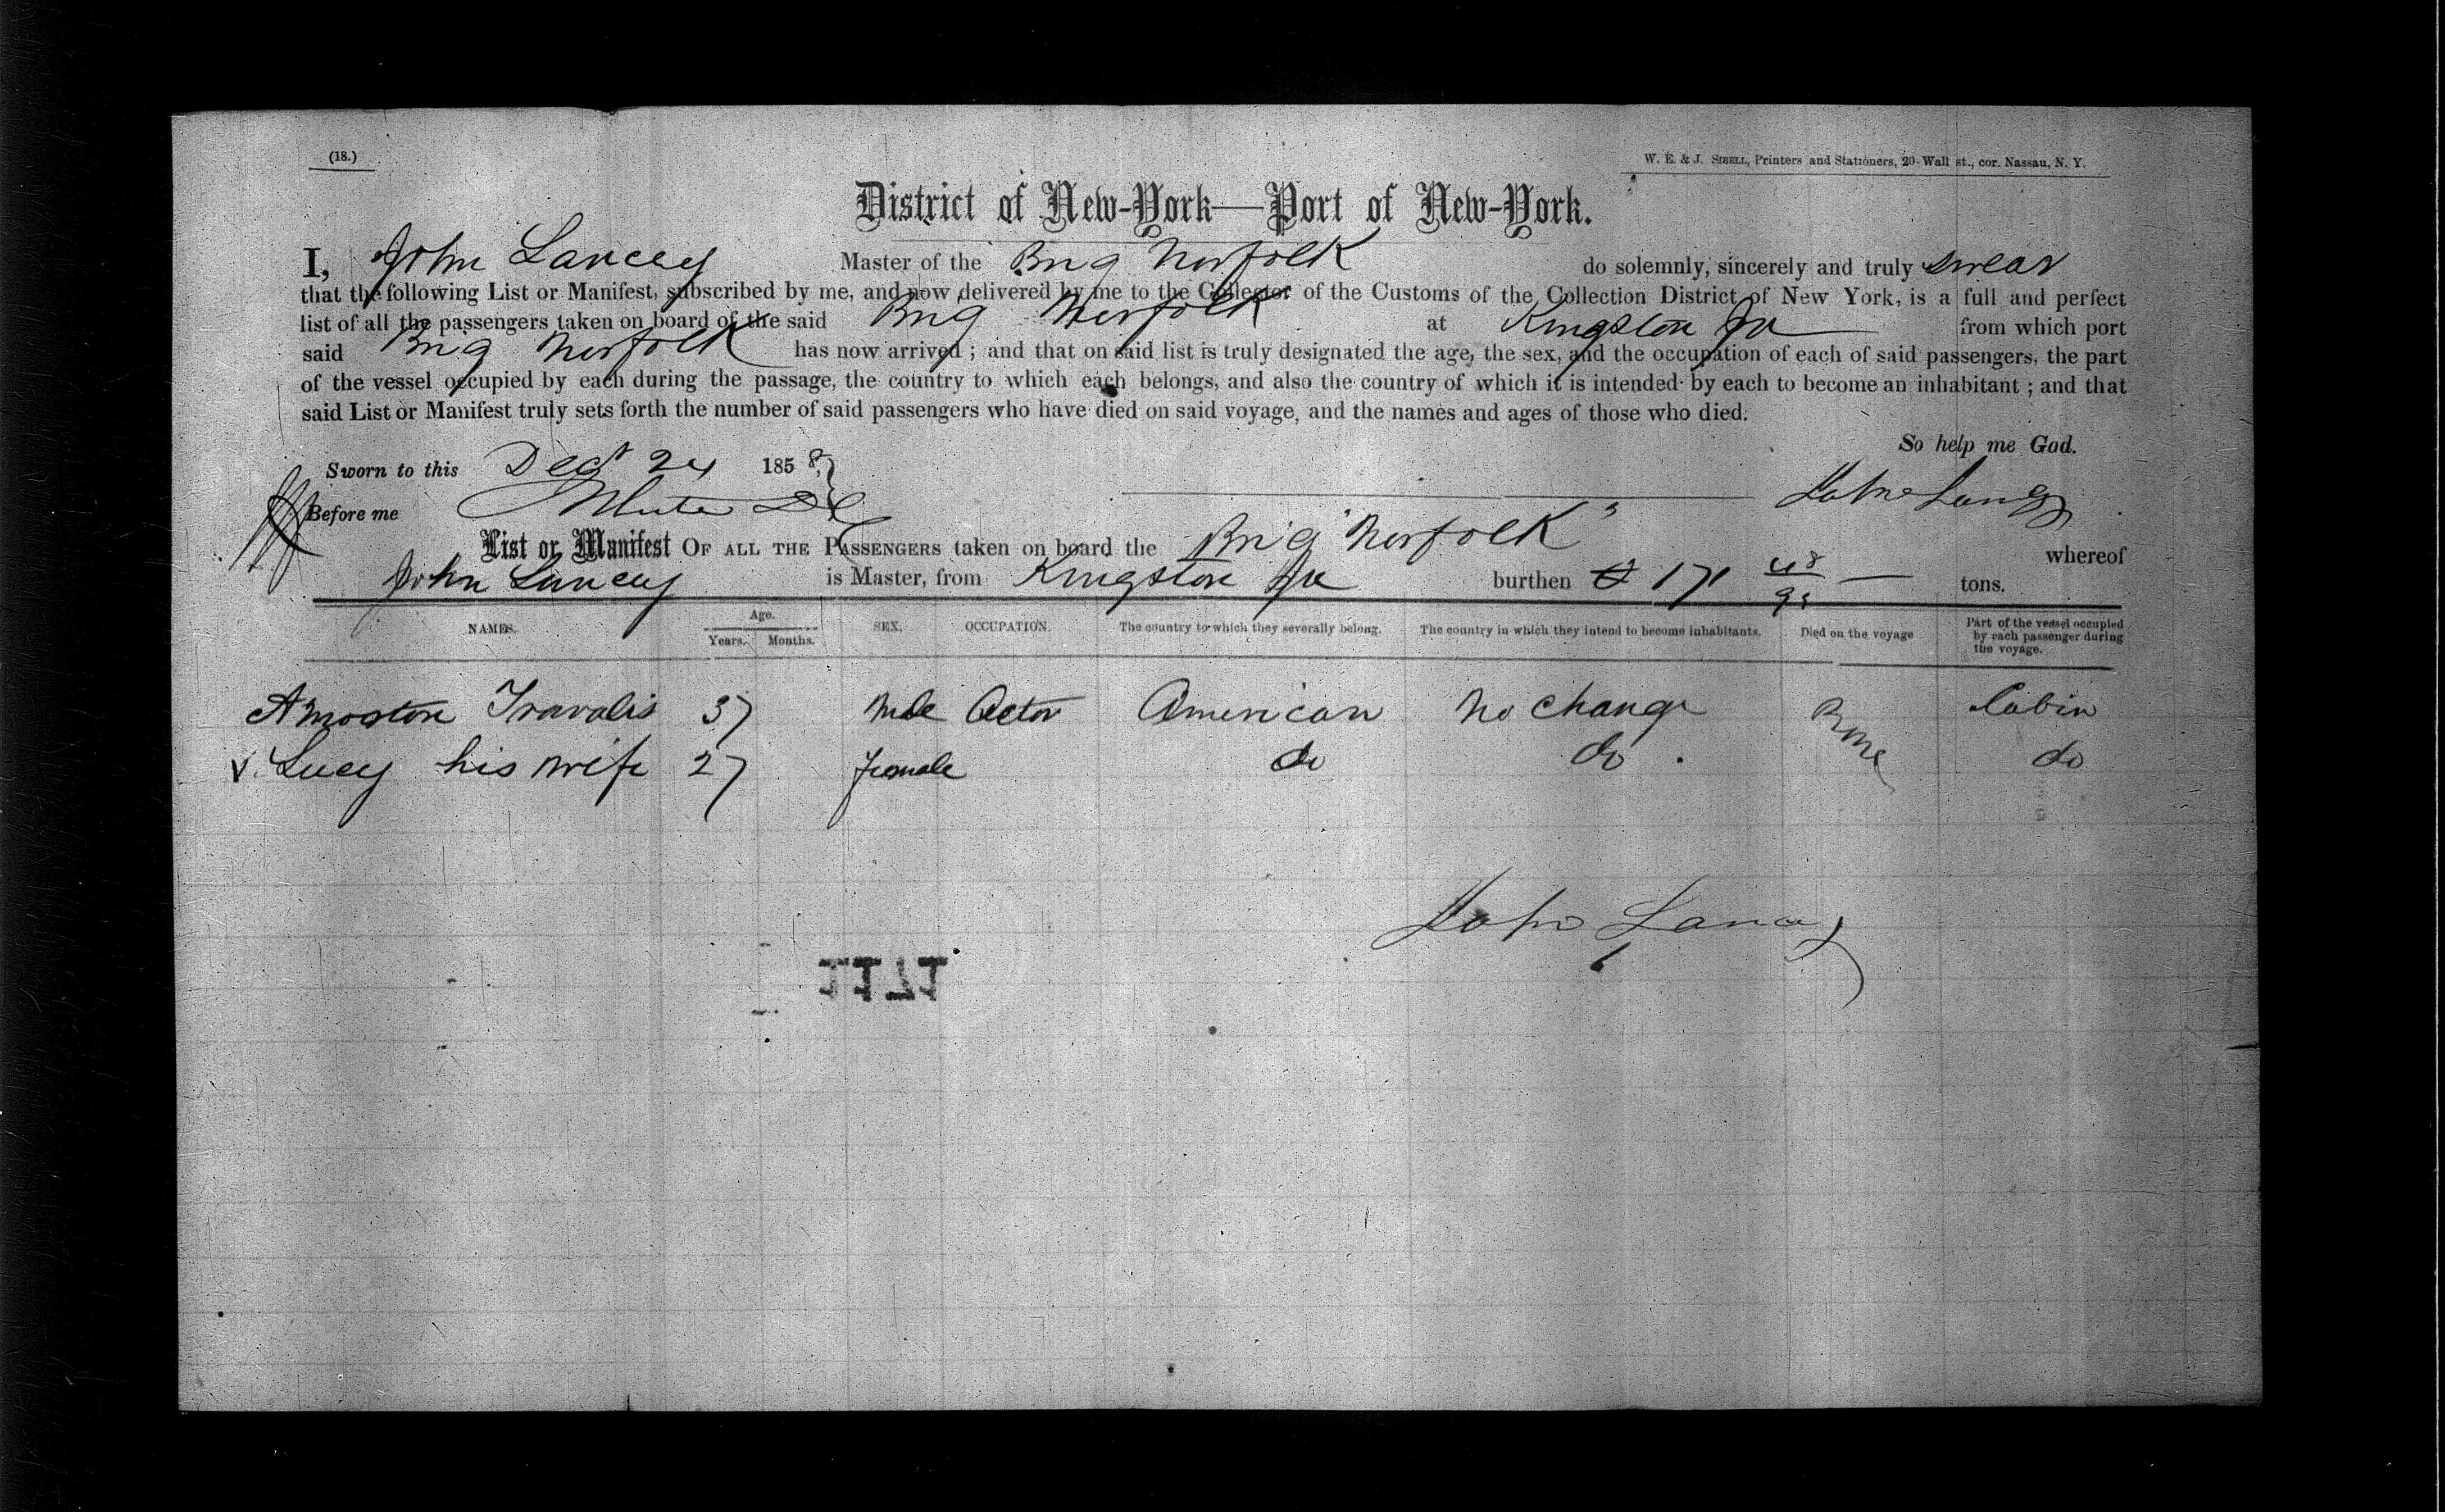 (18.)
W. E. & J. SIBELL, Printers and Stationers, 20 Wall st., cor. Nassau, N. Y.
District of New-York—Port of New-York.
I, John Lancey Master of the Brig Norfolk do solemnly, sincerely and truly swear
that the following List or Manifest, subscribed by me, and now delivered by me to the Collector of the Customs of the Collection District of New York, is a full and perfect
list of all the passengers taken on board of the said Brig Norfolk at Kingston Ja from which port
said Brig Norfolk has now arrived; and that on said list is truly designated the age, the sex, and the occupation of each of said passengers, the part
of the vessel occupied by each during the passage, the country to which each belongs, and also the country of which it is intended by each to become an inhabitant; and that
said List or Manifest truly sets forth the number of said passengers who have died on said voyage, and the names and ages of those who died.
So help me God.
Sworn to this Decr 24 1858,
John Lancey
Before me
List or Manifest OF ALL THE PASSENGERS taken on board the Brig "Norfolk" whereof
John Lancey is Master, from Kingston Ja burthen 171 48/95 — tons.
NAMES. Age. Years. Months. SEX. OCCUPATION. The country to which they severally belong. The country in which they intend to become inhabitants. Died on the voyage Part of the vessel occupied by each passenger during the voyage.
Travalis 37 Male Actor American No change None Cabin
Lucy his wife 27 female do do do
John Lancey
1171